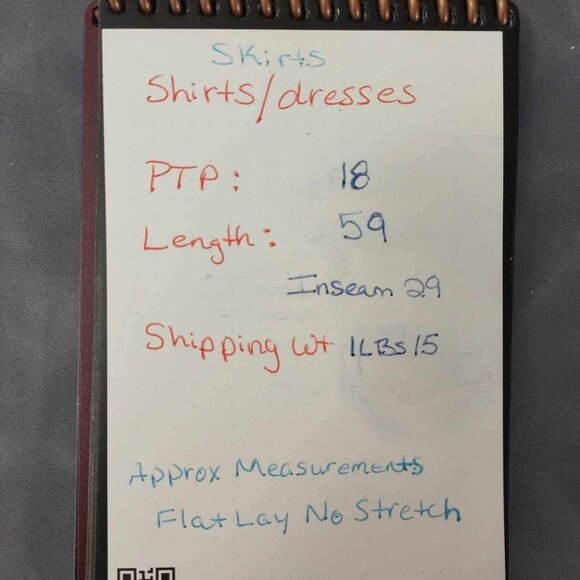 Skirts
Shirts/dresses
PTP: 18
Length: 59
Inseam 29
Shipping Wt 1LBS 15
Approx Measurements
Flat Lay No Stretch